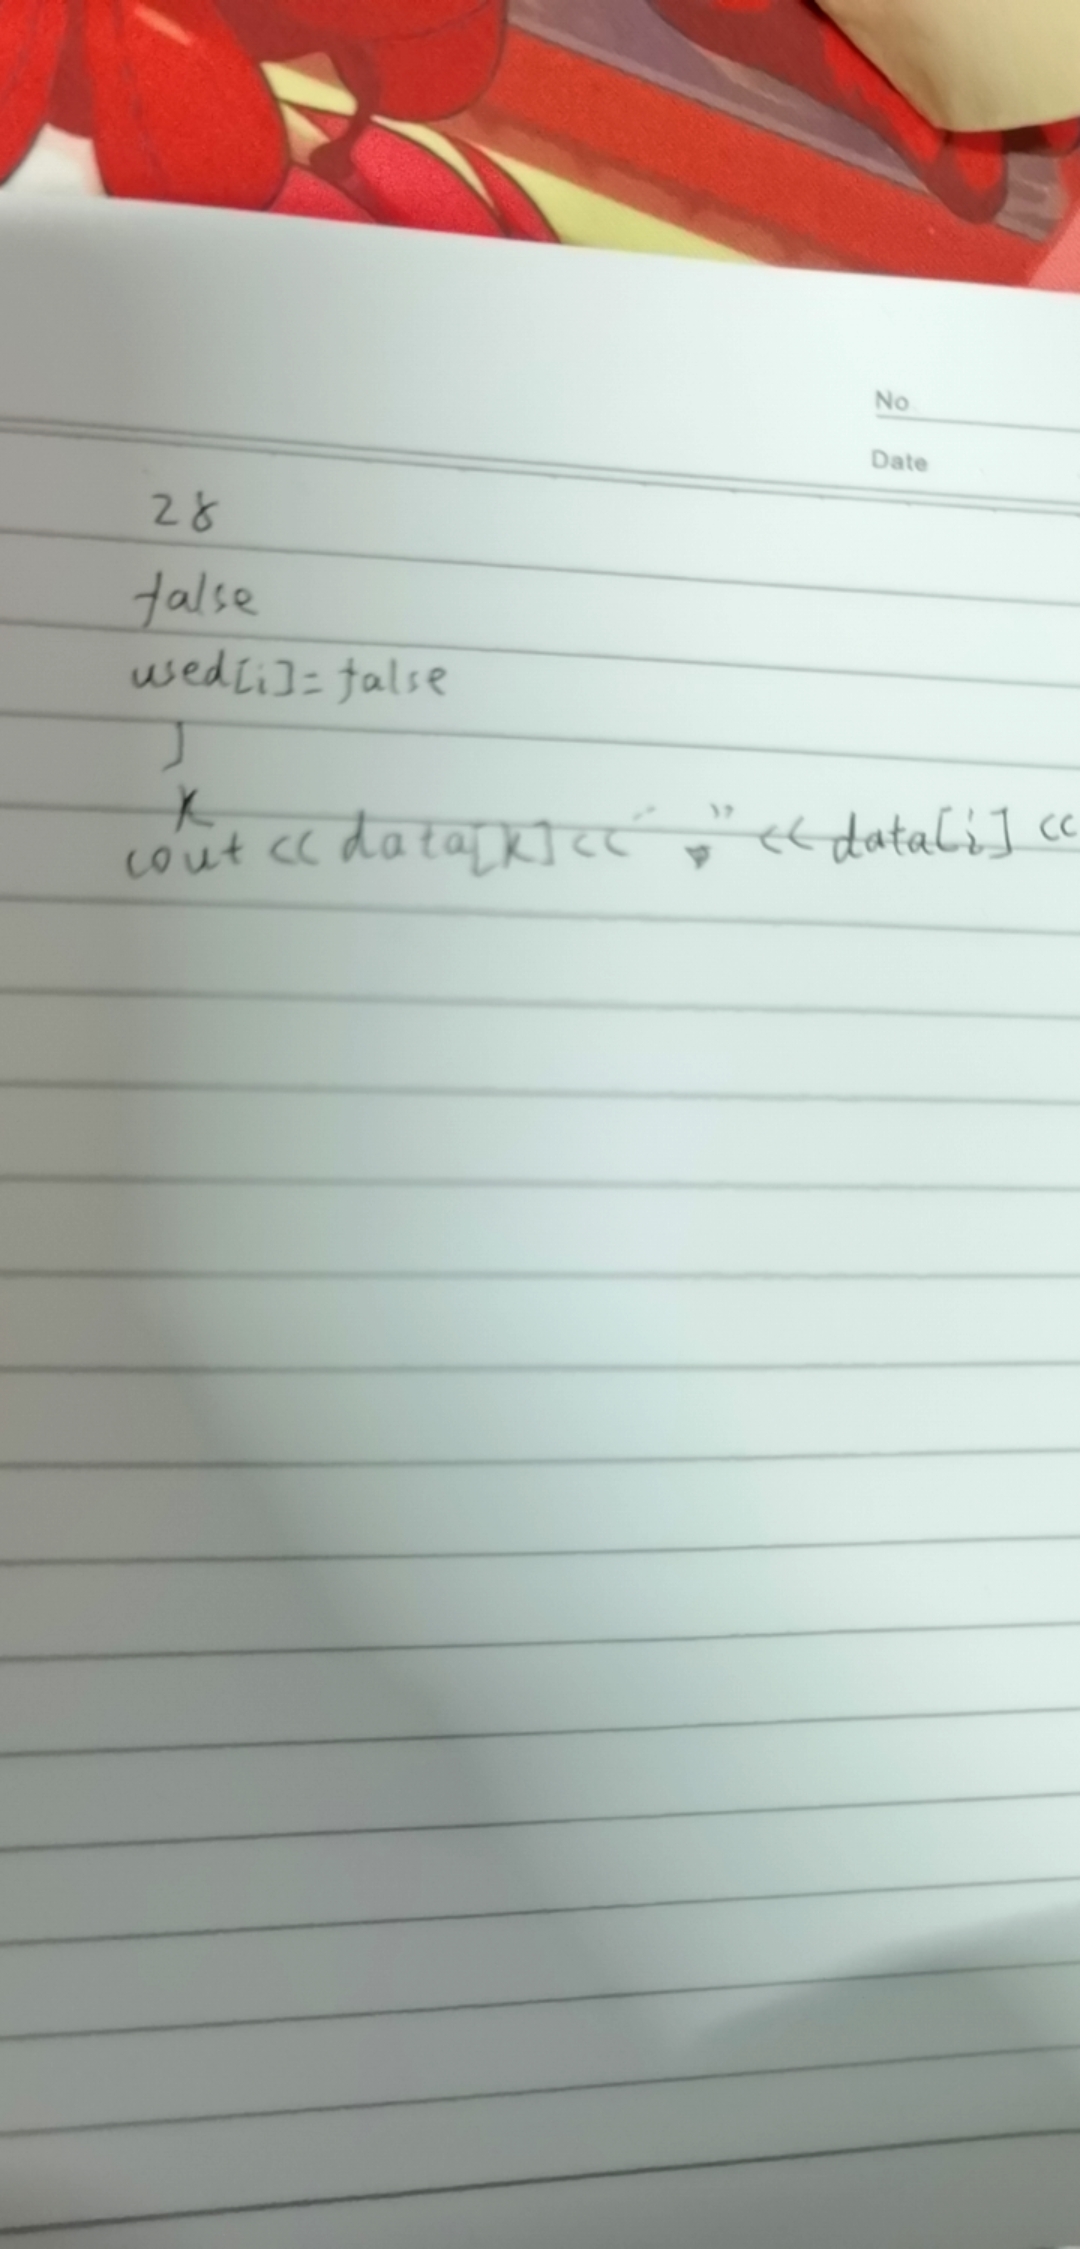 No.
Date
28
false
used[i]=false
j
k
cout << data[k] << " " << data[i] <<